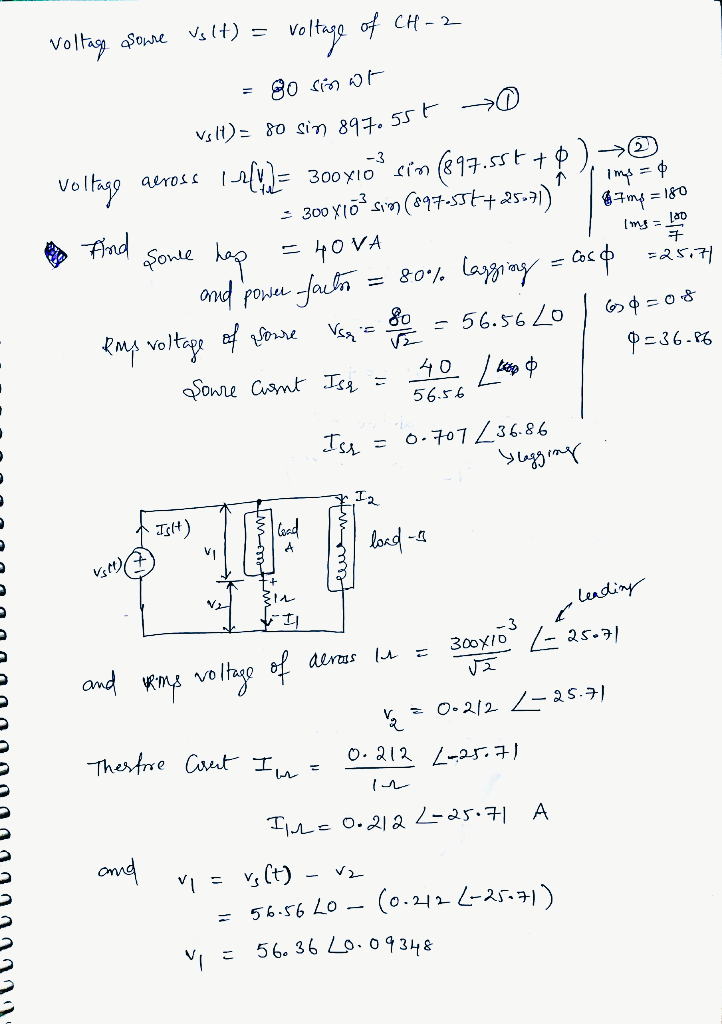 voltage sourse vs(t) = voltage of CH-2
= 80 sin ωt
vs(t) = 80 sin 897.55t → ①
voltage aeross 1Ω(V1Ω) = 300x10^-3 sin (897.55t + φ) → ②
= 300x10^-3 sin (897.55t + 25.71)
1ms = φ
7ms = 180
1ms = 180/7
= 25.71
And = 40 VA
and power factor = 80% lagging = cos φ
cos φ = 0.8
φ = 36.86
Rms voltage of sourse Vsr = 80/√2 = 56.56 ∠0
Sourse Curent Isr = 40/56.56 ∠ φ
Isr = 0.707 ∠36.86
↳ lagging
I2
Is(t)
load A
load-B
vs(t)
v1
v2
1Ω
I1
leading
and rms voltage of aeross 1Ω = 300x10^-3/√2 ∠-25.71
v2 = 0.212 ∠-25.71
Therfore Curent I1Ω = 0.212/1Ω ∠-25.71
I1Ω = 0.212 ∠-25.71 A
and v1 = vs(t) - v2
= 56.56 ∠0 - (0.212 ∠-25.71)
v1 = 56.36 ∠0.09348